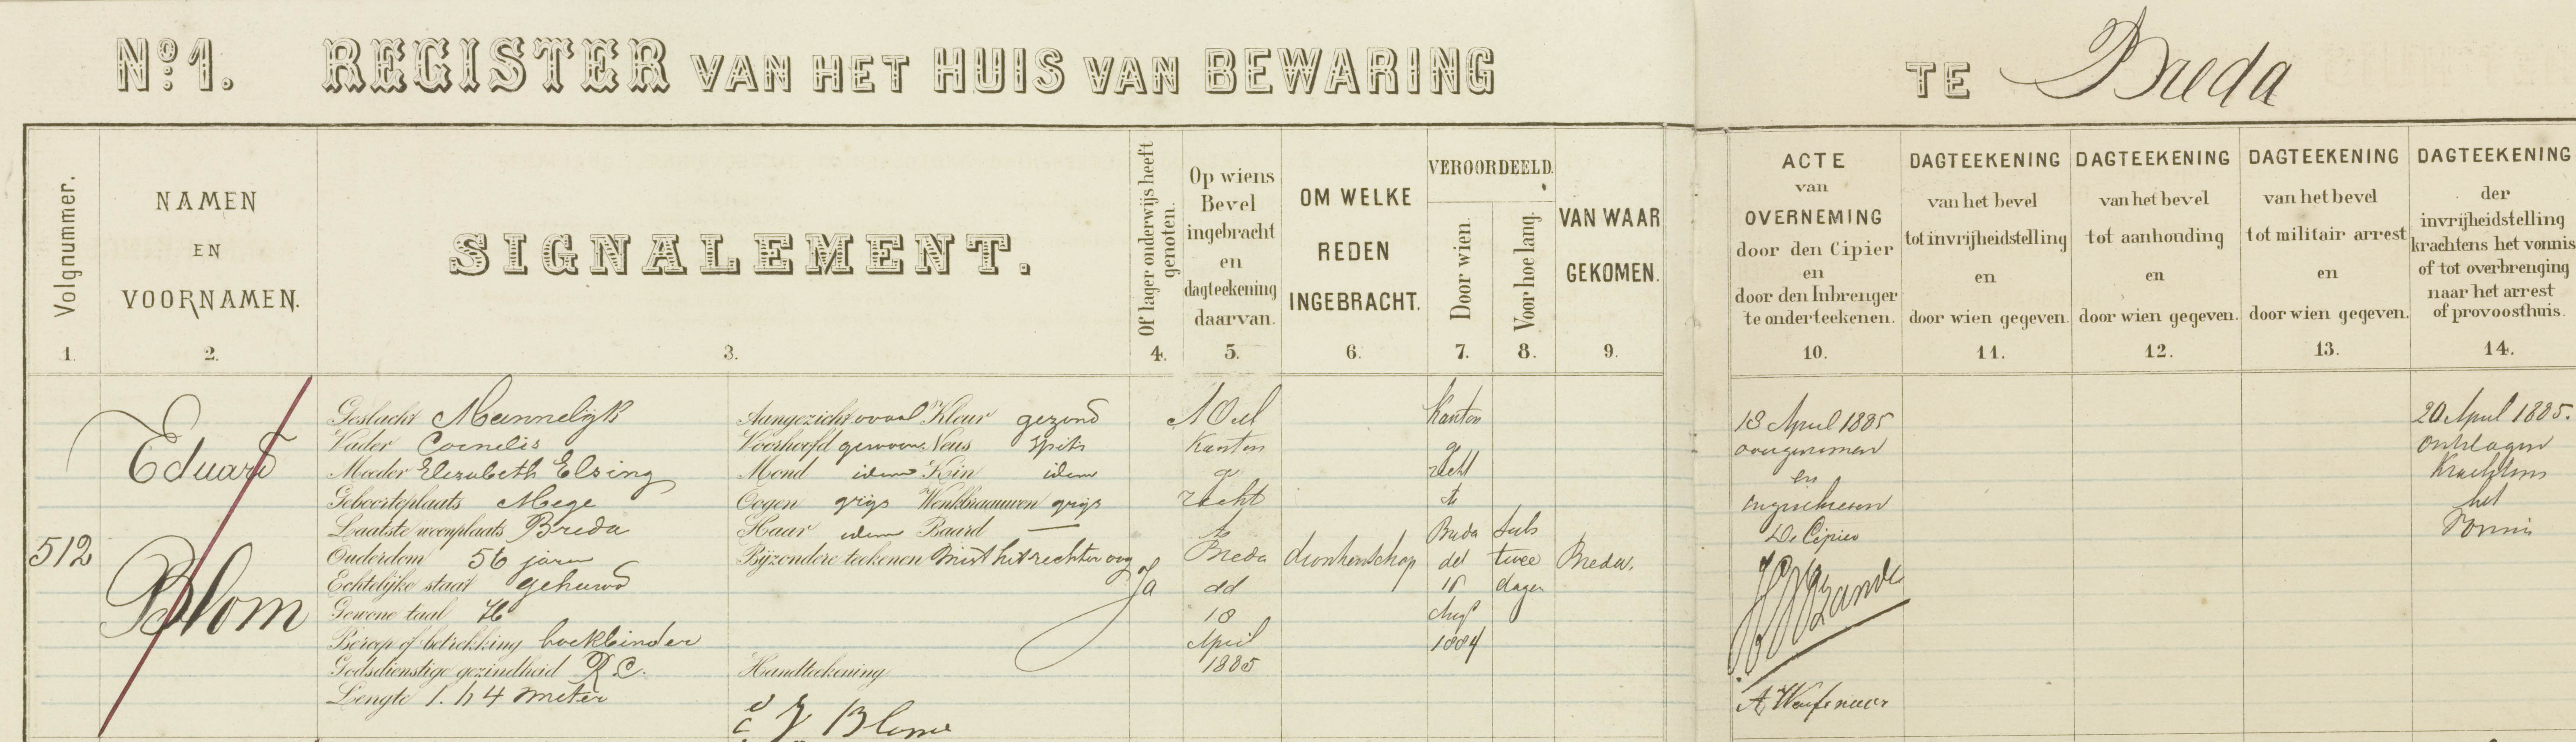 No. 1. REGISTER VAN HET HUIS VAN BEWARING TE Breda
Volgnummer.
1.
NAMEN
EN
VOORNAMEN.
2.
SIGNALEMENT.
3.
Of lager onderwijs heeft
genoten.
4.
Op wiens
Bevel
ingebracht
en
dagteekening
daarvan.
5.
OM WELKE
REDEN
INGEBRACHT.
6.
VEROORDEELD.
Door wien.
7.
Voor hoe lang.
8.
VAN WAAR
GEKOMEN.
9.
ACTE
van
OVERNEMING
door den Cipier
en
door den Inbrenger
te onderteekenen.
10.
DAGTEEKENING
van het bevel
tot invrijheidstelling
en
door wien gegeven.
11.
DAGTEEKENING
van het bevel
tot aanhouding
en
door wien gegeven.
12.
DAGTEEKENING
van het bevel
tot militair arrest
en
door wien gegeven.
13.
DAGTEEKENING
der
invrijheidstelling
krachtens het vonnis
of tot overbrenging
naar het arrest
of provoosthuis.
14.
512
Eduard
Blom
Geslacht Mannelijk
Vader Cornelis
Moeder Elezabeth Elsing
Geboorteplaats Mege
Laatste woonplaats Breda
Ouderdom 56 jaren
Echtelijke staat gehuwd
Gewone taal H
Beroep of betrekking boekbinder
Godsdienstige gezindheid R C.
Lengte 1. h 4 meter
Aangezicht ovaal Kleur gezond
Voorhoofd gewoon Neus spits
Mond idem Kin idem
Oogen grijs Wenkbraauwen grijs
Haar idem Baard —
Bijzondere teekenen Mist het rechter oog
Handteekening
Blom
Ja
Kanton
ge
recht
te
Breda
dd
18
April
1885
dronkenschap
Kanton
ge
recht
te
Breda
dd
Aug
1884
Subs
twee
dagen
Breda.
18 April 1885
overgenomen
en
ingeschreven
De Cipier
20 April 1885.
ontslagen
Krachtens
het
Vonnis